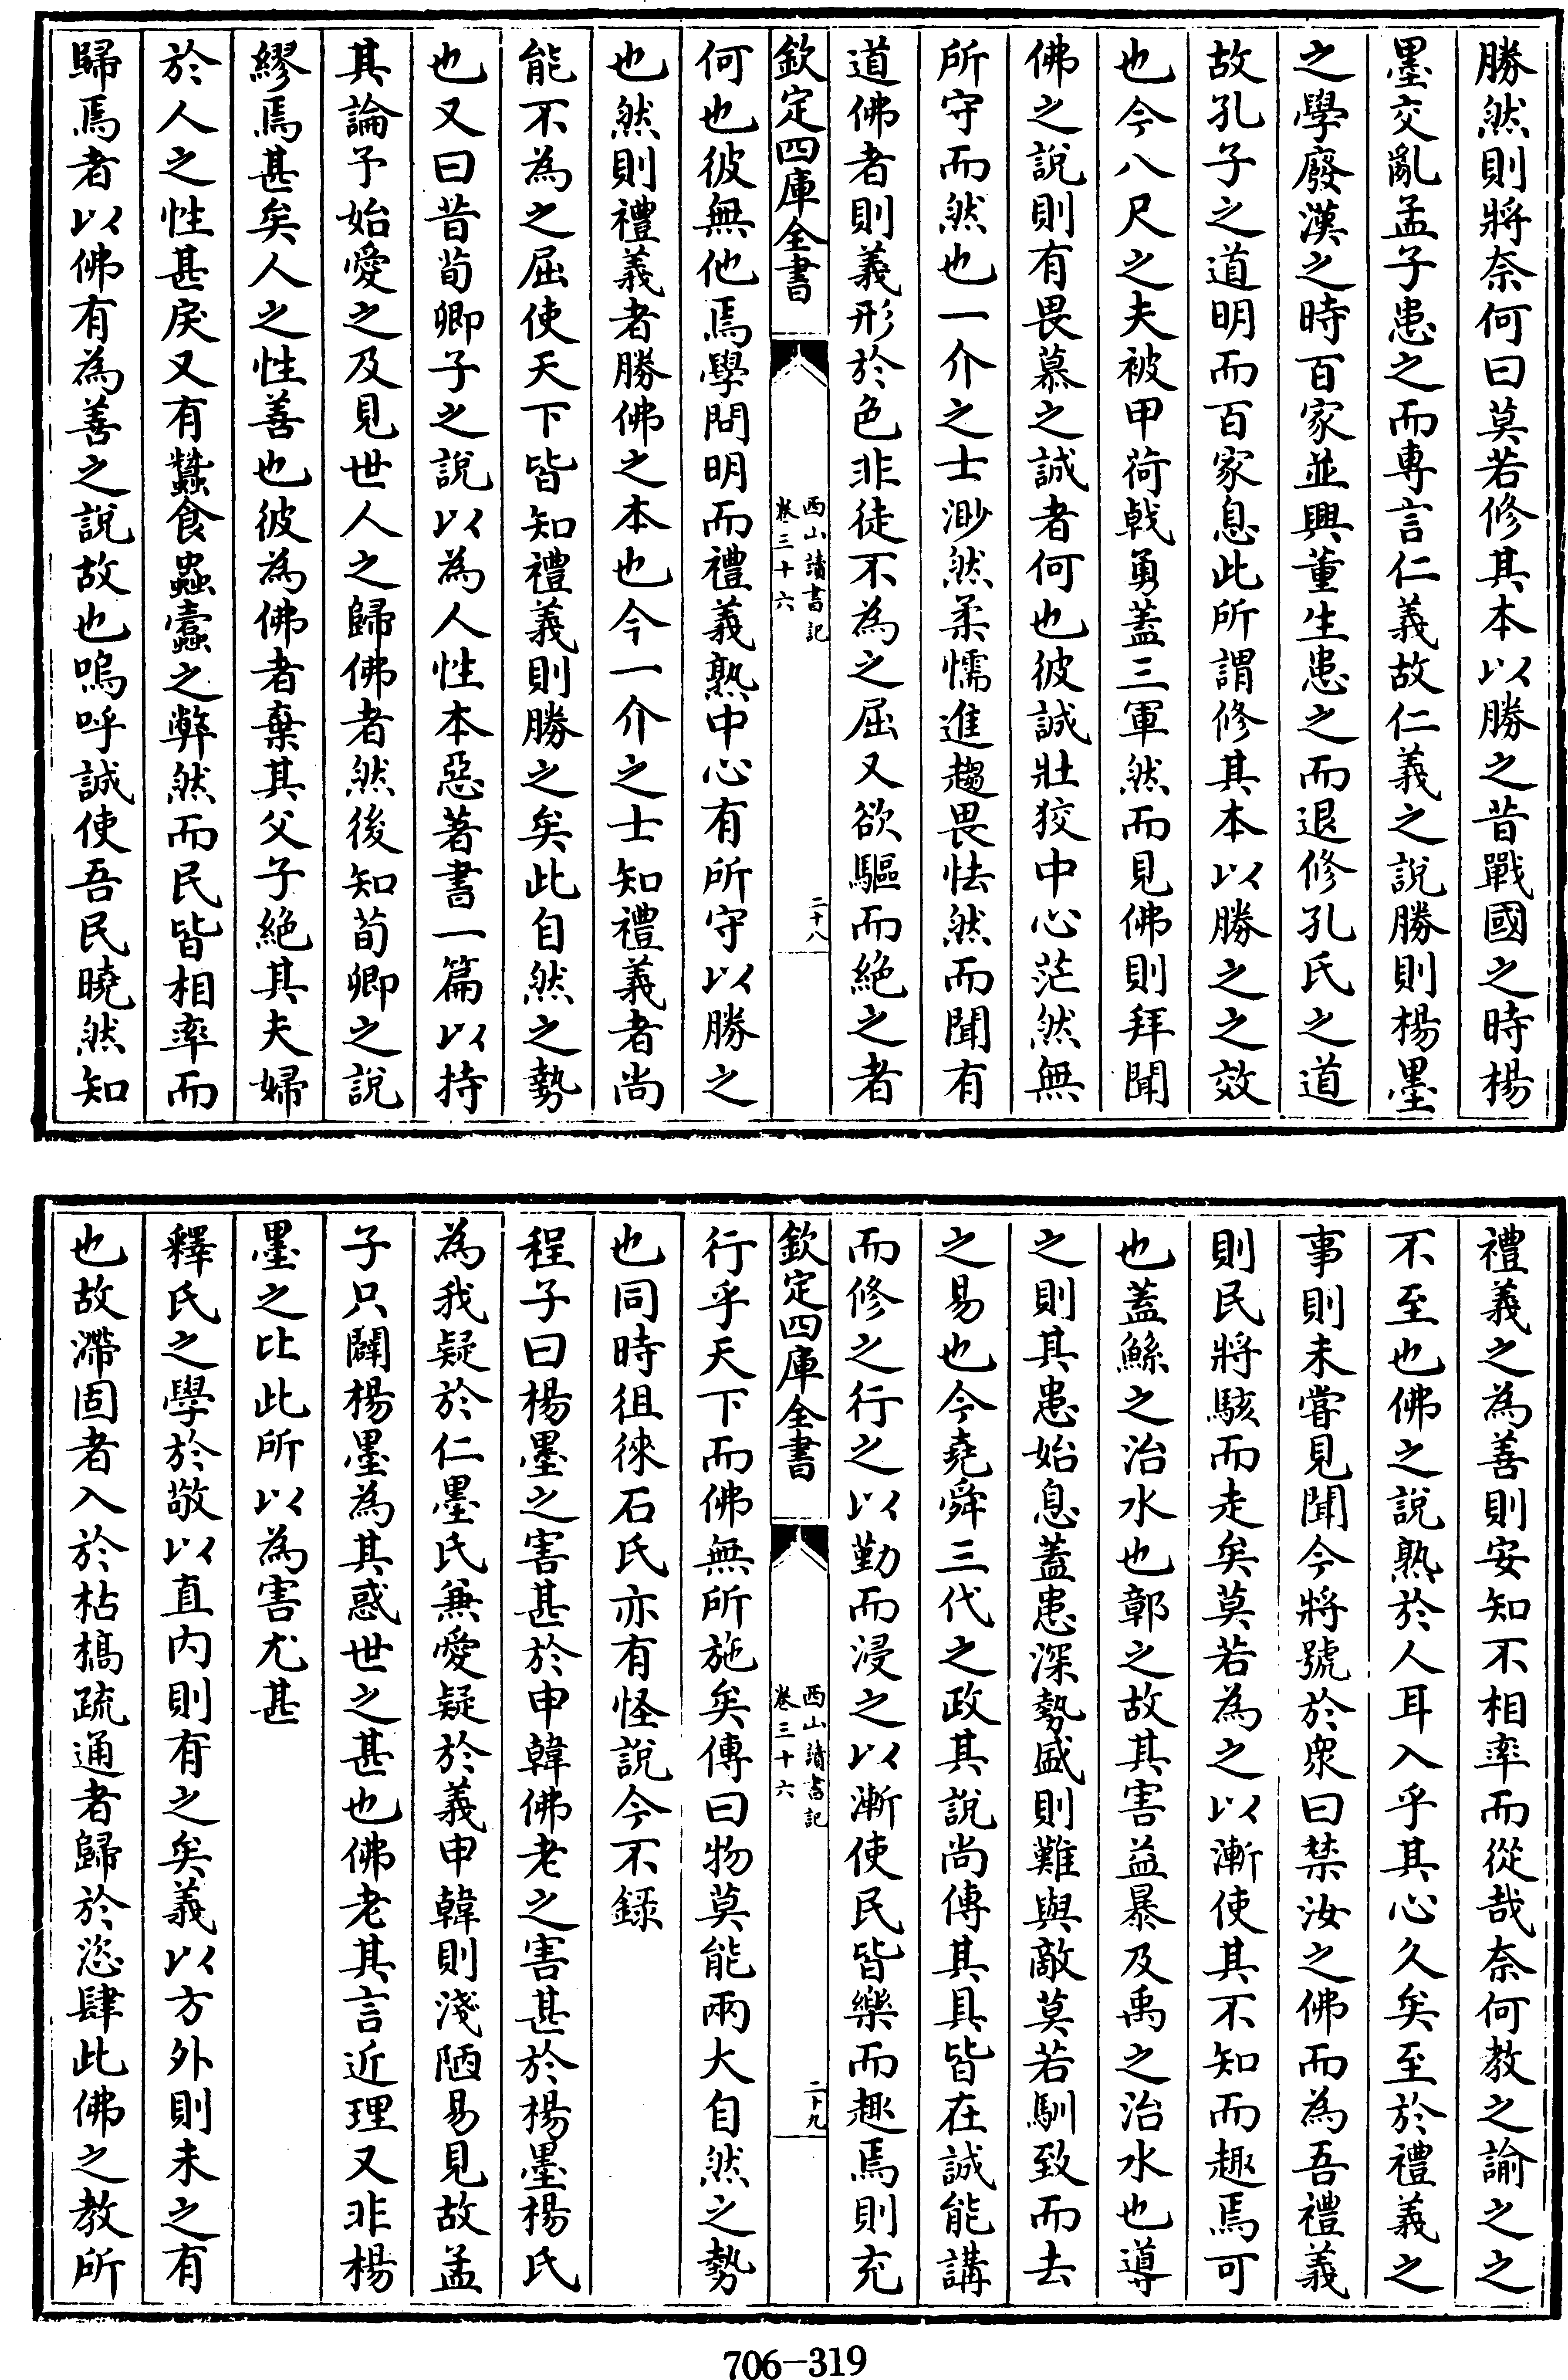 勝然則將奈何曰莫若修其本以勝之昔戰國之時楊
墨交亂孟子患之而專言仁義故仁義之說勝則楊墨
之學廢漢之時百家並興董生患之而退修孔氏之道
故孔子之道明而百家息此所謂修其本以勝之之效
也今八尺之夫被甲荷戟勇蓋三軍然而見佛則拜聞
佛之說則有畏慕之誠者何也彼誠壯狡中心茫然無
所守而然也一介之士渺然柔懦進趨畏怯然而聞有
道佛者則義形於色非徒不為之屈又欲驅而絶之者
欽定四庫全書
西山讀書記
卷三十六
二十八
何也彼無他焉學問明而禮義熟中心有所守以勝之
也然則禮義者勝佛之本也今一介之士知禮義者尚
能不為之屈使天下皆知禮義則勝之矣此自然之勢
也又曰昔荀卿子之說以為人性本惡著書一篇以持
其論予始愛之及見世人之歸佛者然後知荀卿之說
繆焉甚矣人之性善也彼為佛者棄其父子絶其夫婦
於人之性甚戾又有蠶食蟲蠹之弊然而民皆相率而
歸焉者以佛有為善之說故也嗚呼誠使吾民曉然知
禮義之為善則安知不相率而從哉奈何教之諭之之
不至也佛之說熟於人耳入乎其心久矣至於禮義之
事則未嘗見聞今將號於衆曰禁汝之佛而為吾禮義
則民將駭而走矣莫若為之以漸使其不知而趣焉可
也蓋鯀之治水也鄣之故其害益暴及禹之治水也導
之則其患始息蓋患深勢盛則難與敵莫若馴致而去
之易也今堯舜三代之政其說尚傳其具皆在誠能講
而修之行之以勤而浸之以漸使民皆樂而趣焉則充
欽定四庫全書
西山讀書記
卷三十六
二十九
行乎天下而佛無所施矣傳曰物莫能兩大自然之勢
也同時徂徠石氏亦有怪說今不録
程子曰楊墨之害甚於申韓佛老之害甚於楊墨楊氏
為我疑於仁墨氏兼愛疑於義申韓則淺陋易見故孟
子只闢楊墨為其惑世之甚也佛老其言近理又非楊
墨之比此所以為害尤甚
釋氏之學於敬以直内則有之矣義以方外則未之有
也故滯固者入於枯槁疏通者歸於恣肆此佛之教所
706-319